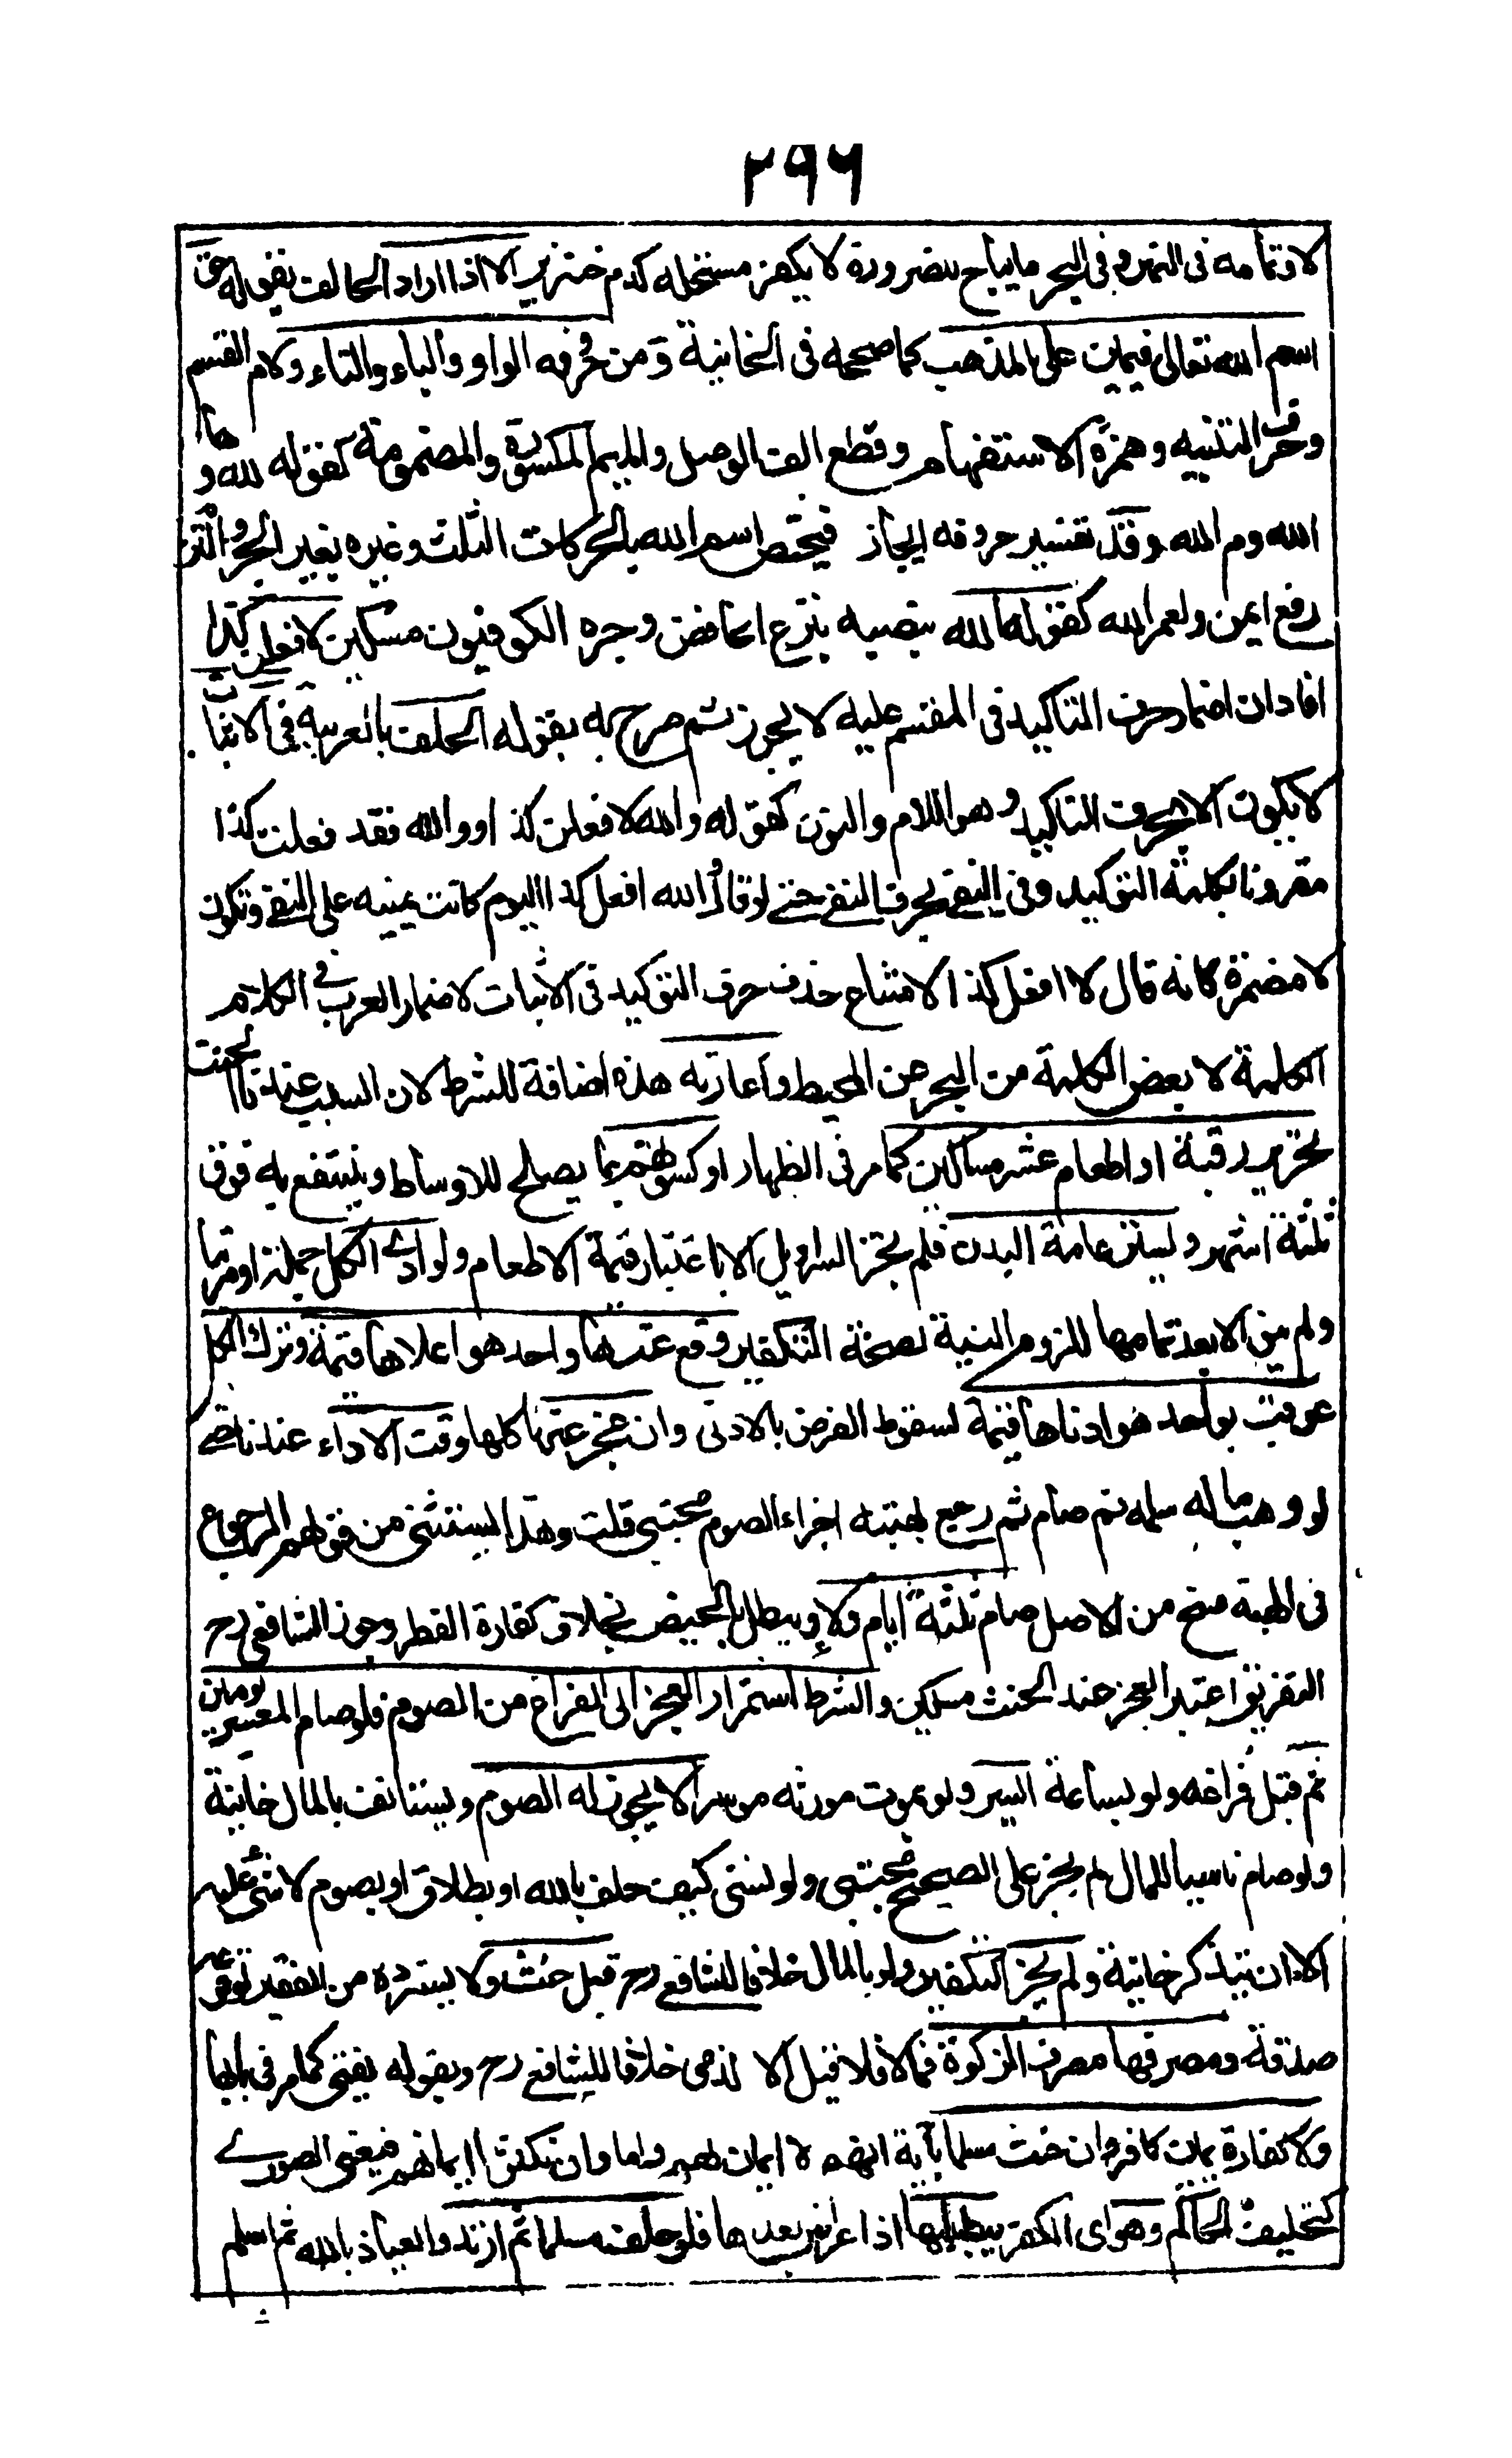 ٢٩٦
لا وتمامه فى النهر وفى البحر ما يباح للضرورة لا يكفر مستحله كدم خنزير الا اذا اراد الحالف بقوله حق
اسم الله تعالى فيمين على المذهب كما صححه فى الخانية ومن حروفه الواو والباء والتاء ولام القسم
وحرف التنبيه وهمزة الاستفهام وقطع الف الوصل والميم المكسورة والمضمومة كقوله لله وها
الله وم الله وقد تضمر حروفه ايجاز فيختص اسم الله بالحركات الثلث وغيره بغير الجر والتزم
رفع ايمن ولعمر الله كقوله الله بنصبه بنزع الخافض وجره الكوفيون مسكين لافعلن كذا
افاد ان اضمار حرف التاكيد فى المقسم عليه لا يجوز ثم صرح به بقوله الحلف بالعربية فى الاثبات
لا يكون الا بحرف التاكيد وهو اللام والنون كقوله والله لافعلن كذا او والله لقد فعلت كذا
مقرونا بكلمة التوكيد وفى النفى بحرف النفى حتى لو قال والله افعل كذا اليوم كانت يمينه على النفى وتكون
لا مضمرة كانه قال لا افعل كذا لامتناع حذف حرف التوكيد فى الاثبات لاضمار العرب فى الكلام
الكلمة لا بعض الكلمة من البحر عن المحيط وكفارته هذه اضافة للشرط لان السبب عندنا الحنث
تحرير رقبة او اطعام عشر مساكين كما مر فى الظهار او كسوتهم بما يصلح للاوساط وينتفع به فوق
ثلثة اشهر ويستر عامة البدن فلم يجز السراويل الا باعتبار قيمة الاطعام ولو ادى الكل جملة او مرتبا
ولم ينو الا بعد تمامها للزوم النية لصحة التكفير وقع عنها واحد هو اعلاها قيمة وترك الكل
عوقب بواحد هو ادناها قيمة لسقوط الفرض بالادنى وان عجز عنها كلها وقت الاداء عندنا حتى
لو وهب ماله سلمه ثم صام ثم رجع بهبته اجزاه الصوم مجتبى قلت وهذا يستثنى من قولهم الرجوع
فى الهبة فسخ من الاصل صام ثلثة ايام ولاء ويبطل بالحيض بخلاف كفارة الفطر وجوز الشافعى رح
التفريق اعتبر العجز عند الحنث مسكين والشرط استمرار العجز الى الفراغ من الصوم فلو صام المعسر يومين
ثم قبل فراغه ولو بساعة ايسر ولو بموت مورثه موسرا لا يجوز له الصوم ويستانف بالمال خانية
ولو صام ناسيا للمال لم يجز على الصحيح مجتبى ولو نسى كيف حلف بالله او بطلاق او بصوم لا شئ عليه
الا ان يتذكر خانية ولم يجز التكفير ولو بالمال خلافا للشافعى رح قبل حنث ولا يسترده من الفقير لوقوعه
صدقة ومصرفها مصرف الزكوة فما لا فلا قيل الا لذمى خلافا للشافعى رح وبقوله يفتى كما مر فى بابها
ولا كفارة بيمين كافر وان حنث مسلما بآية انهم لا ايمان لهم واما وان نكثوا ايمانهم فيعنى الصورى
كتحليف الحاكم وهو اى الكفر يبطلها اذا عرض بعدها فلو حلف مسلما ثم ارتد والعياذ بالله ثم اسلم